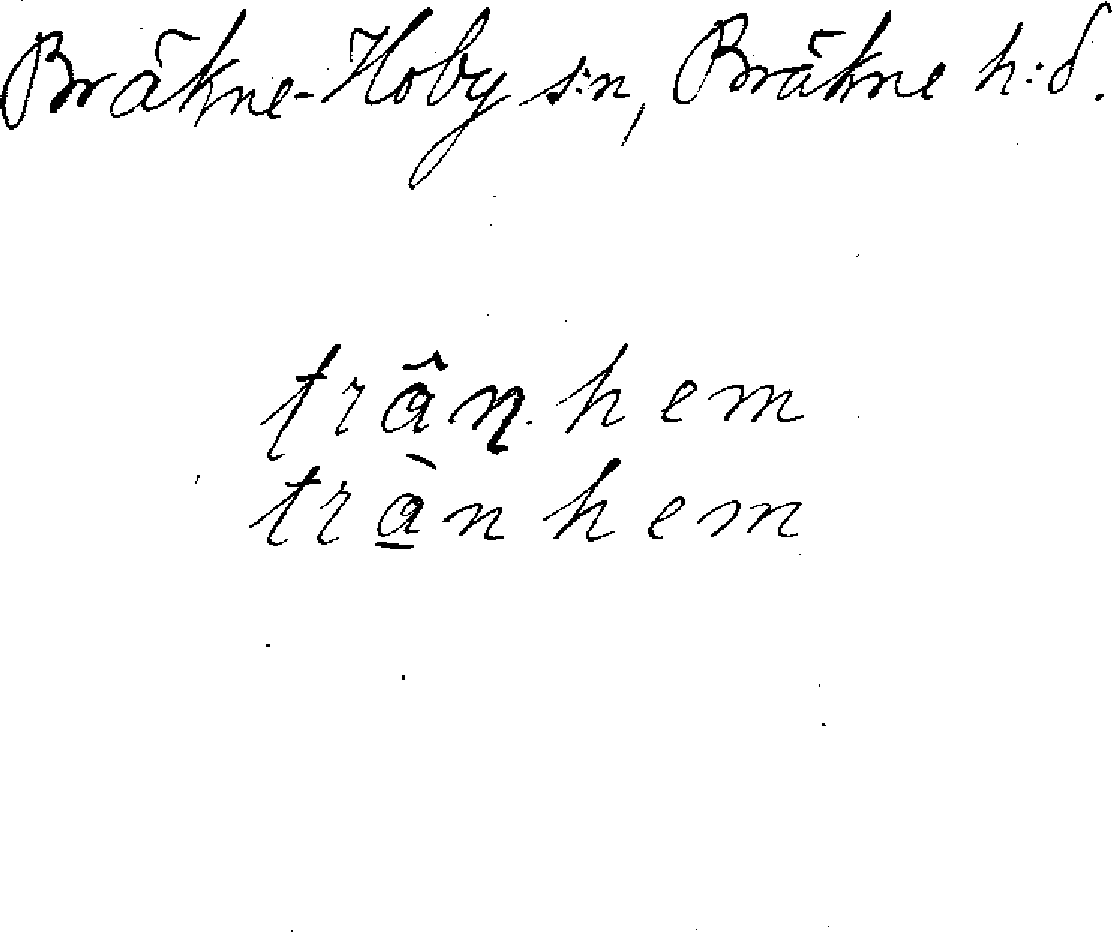 Bräkne-Hoby s:n, Bräkne h:d.
trâŋhem
trà̱nhem